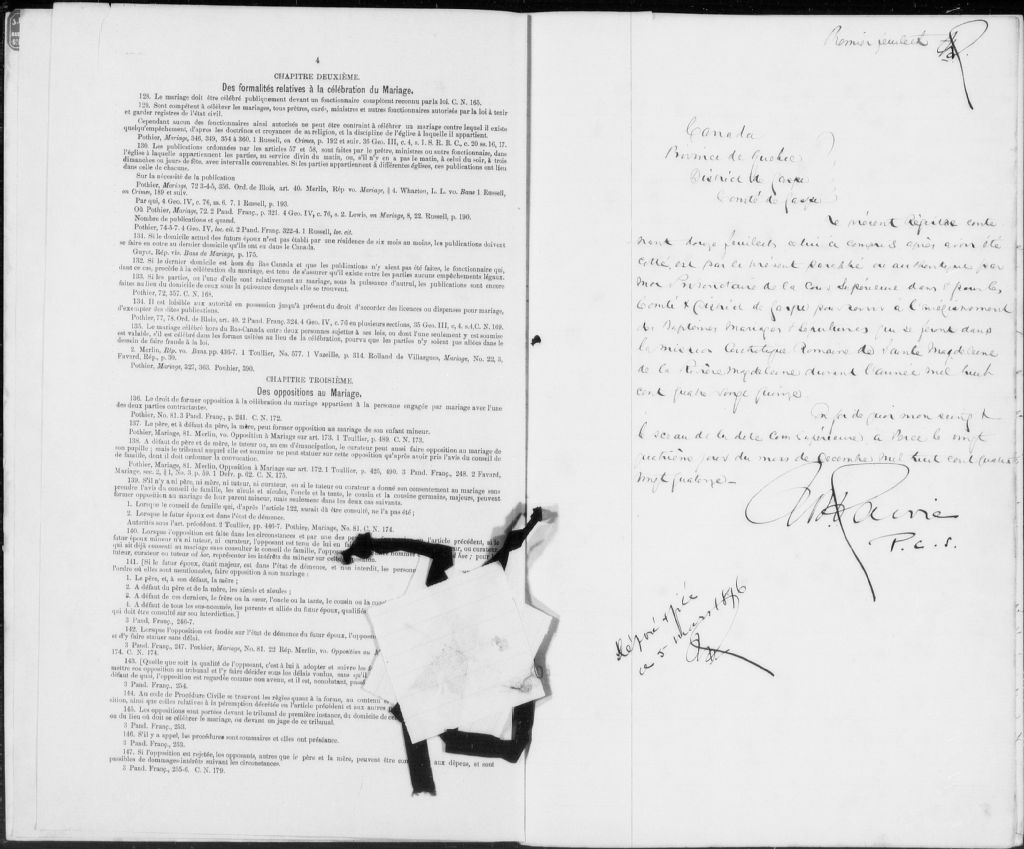 4
CHAPITRE DEUXIÈME.
Des formalités relatives à la célébration du Mariage.
128. Le mariage doit être célébré publiquement devant un fonctionnaire compétent reconnu par la loi. C. N. 165.
129. Sont compétent à célébrer les mariages, tous prêtres, curés, ministres et autres fonctionnaires autorisés par la loi à tenir
et garder registres de l'état civil.
Cependant aucun des fonctionnaires ainsi autorisés ne peut être contraint à célébrer un mariage contre lequel il existe
quelqu'empêchement, d'après les doctrines et croyances de sa religion, et la discipline de l'église à laquelle il appartient.
Pothier, Mariage, 346, 349, 354 à 360. 1 Russell, on Crimes, p. 192 et suiv. 35 Geo. III, c. 4, s. 1. S. R. B. C., c. 20 ss. 16, 17.
130. Les publications ordonnées par les articles 57 et 58, sont faites par le prêtre, ministres ou autre fonctionnaire, dans
l'église à laquelle appartiennent les parties, au service divin du matin, ou, s'il n'y en a pas le matin, à celui du soir, à trois
dimanches ou jours de fête, avec intervalle convenables. Si les parties appartiennent à différentes églises, ces publications ont lieu
dans celle de chacune.
Sur la nécessité de la publication
Pothier, Mariage, 72 3-4-5, 356. Ord. de Blois, art. 40. Merlin, Rép. vo. Mariage, § 4. Wharton, L. L. vo. Bans 1 Russell,
on Crimes, 189 et suiv.
Par qui, 4 Geo. IV, c. 76, ss. 6. 7. 1 Russell, p. 193.
Où Pothier, Mariage, 72. 2 Pand. Franç., p. 321. 4 Geo. IV, c. 76, s. 2. Lewis, on Mariage, 8, 22. Russell, p. 190.
Nombre de publications et quand.
Pothier, 74-5-7. 4 Geo. IV, loc. cit. 2 Pand. Franç. 322-4. 1 Russell, loc. cit.
131. Si le domicile actuel des futurs époux n'est pas établi par une résidence de six mois au moins, les publications doivent
se faire en outre au dernier domicile qu'ils ont eu dans le Canada.
Guyot, Rép. vis. Bans de Mariage, p. 175.
132. Si le dernier domicile est hors du Bas-Canada et que les publications n'y aient pas été faites, le fonctionnaire qui,
dans ce cas, procède à la célébration du mariage, est tenu de s'assurer qu'il existe entre les parties aucune empêchements légaux.
133. Si les parties, ou l'une d'elles sont relativement au mariage, sous la puissance d'autrui, les publications sont encore
faites au lieu du domicile de ceux sous la puissance desquels elle se trouvent.
Pothier, 72, 557. C. N. 168.
134. Il est loisible aux autorité en possession jusqu'à présent du droit d'accorder des licences ou dispenses pour mariage,
d'exempter des dites publications.
Pothier, 77, 78. Ord. de Blois, art. 40. 2 Pand. Franç. 324. 4 Geo. IV, c. 76 en plusieurs sections, 35 Geo. III, c. 4. s.4, C. N. 169.
135. Le mariage célébré hors du Bas-Canada entre deux personnes sujettes à ses lois, ou dont l'une seulement y est soumise
est valable, s'il est célébré dans les formes usitées au lieu de la célébration, pourvu que les parties n'y soient pas allées dans le
dessein de faire fraude à la loi.
2. Merlin, Rép. vo. Bans pp. 436-7. 1 Toullier, No. 577. 1 Vazeille, p. 314. Rolland de Villargues, Mariage, No. 22, 3,
Favard, Rép., p. 30.
Pothier, Mariage, 327, 363. Pouhier, 390.
CHAPITRE TROISIÈME.
Des oppositions au Mariage.
136. Le droit de former opposition à la célébration du mariage appartient à la personne engagée par mariage avec l'une
des deux parties contractantes.
Pothier, No. 81. 3 Pand. Franç., p. 241. C. N. 172.
137. Le père, et à défaut du père, la mère, peut former opposition au mariage de son enfant mineur.
Pothier, Mariage, 81. Merlin, vo. Opposition à Mariage sur art. 173. 1 Toullier, p. 489. C. N. 173.
138. A défaut de père et de mère, le tuteur ou, au cas d'émancipation, le curateur peut aussi faire opposition au mariage de
son pupille; mais le tribunal auquel elle est soumise ne peut statuer sur cette opposition qu'après avoir pris l'avis du conseil de
famille, dont il doit ordonner la convocation.
Pothier, Mariage, 81. Merlin, Opposition à Mariage sur art. 172. 1 Toullier, p. 425, 490. 3 Pand. Franç., 248. 2 Favard,
Mariage, sec. 2, § 1, No. 3, p. 59. 1 Delv. p. 62. C. N. 175.
139. S'il n'y a ni père, ni mère, ni tuteur, ni curateur, ou si le tuteur ou curateur a donné son consentement au mariage sans
prendre l'avis du conseil de famille, les aïeuls et aïeules, l'oncle et la tante, le cousin et la cousine germains, majeurs, peuvent
former opposition au mariage de leur parent mineur, mais seulement dans les deux cas suivants.
1. Lorsque le conseil de famille qui, d'après l'article 122, aurait dû être consulté, ne l'a pas été;
2. Lorsque le futur époux est dans l'état de démence.
Autorités sous l'art. précédent. 2 Toullier, pp. 446-7. Pothier, Mariage, No. 81. C. N. 174.
140. Lorsque l'opposition est faite dans les circonstances et par une des per l'article précédent, si le
futur époux mineur n'a ni tuteur, ni curateur, l'opposant est tenu de lui en fa ou curateur
qui ait déjà consenti au mariage sans consulter le conseil de famille, l'oppo nommer
tuteur, curateur ou tuteur ad hoc, représenter les intérêts du mineur sur cette
141. [Si le futur époux, étant majeur, est dans l'état de démence, et non interdit, les personne
l'ordre où elles sont mentionnées, faire opposition à son mariage:
1. Le père, et, à son défaut, la mère;
2. A défaut du père et de la mère, les aïeuls et aïeules;
3. A défaut de ces derniers, le frère ou la sœur, l'oncle ou la tante, le cousin ou la cou
4. A défaut de tous les sus-nommés, les parents et alliés du futur époux, qualifiés
qui doit être consulté sur son interdiction.]
3 Pand. Franç., 246-7.
142. Lorsque l'opposition est fondée sur l'état de démence du futur époux, l'oppos
et d'y faire statuer sans délai.
3 Pand. Franç., 247. Pothier, Mariage, No. 81. 22 Rép. Merlin, vo. Opposition au M
174. C. N. 174.
143. [Quelle que soit la qualité de l'opposant, c'est à lui à adopter et suivre les f
mettre son opposition au tribunal et l'y faire décider sous les délais voulus, sans qu'il
défaut de quoi, l'opposition est regardée comme non avenu, et il est, nonobstant, pas
3 Pand. Franç., 254.
144. Au code de Procédure Civile se trouvent les règles quant à la forme, au contenu
sition, ainsi que celles relatives à la péremption décrétée en l'article précédent et aux autres
145. Les oppositions sont portées devant le tribunal de première instance, du domicile de ce
ou du lieu où doit se célébrer le mariage, ou devant un juge de ce tribunal.
3 Pand. Franç., 253.
146. S'il y a appel, les procédures sont sommaires et elles ont préséance.
3 Pand. Franç., 253.
147. Si l'opposition est rejetée, les opposants, autres que le père et la mère, peuvent être con aux dépens, et sont
passibles de dommages-intérêts suivant les circonstances.
3 Pand. Franç., 255-6. C. N. 179.
Premier feuillet
Canada
Province de Québec
District de Gaspé
Comté de Gaspé
Le présent Régistre conte
nant douze feuillets celui ci compris après avoir été
coté, est par le présent paraphé ou authentiqué par
moi Protonotaire de la Cour Supérieure dans & pour les
Comté & District de Gaspé pour servir à l'enrégistrement
des Baptêmes Mariages & Sépultures qui se feront dans
la mission Catholique Romaine de Sainte Magdeleine
de la Rivière Magdeleine durant l'année mil huit
cent quatre vingt quinze.
En foi de quoi mon seing &
le sceau de la dite Cour supérieure à Percé le vingt
quatrième jour du mois de Décembre mil huit cent quatre
vingt quatorze —
P. C. S.
Déposé & filé
ce 5 mars 1896